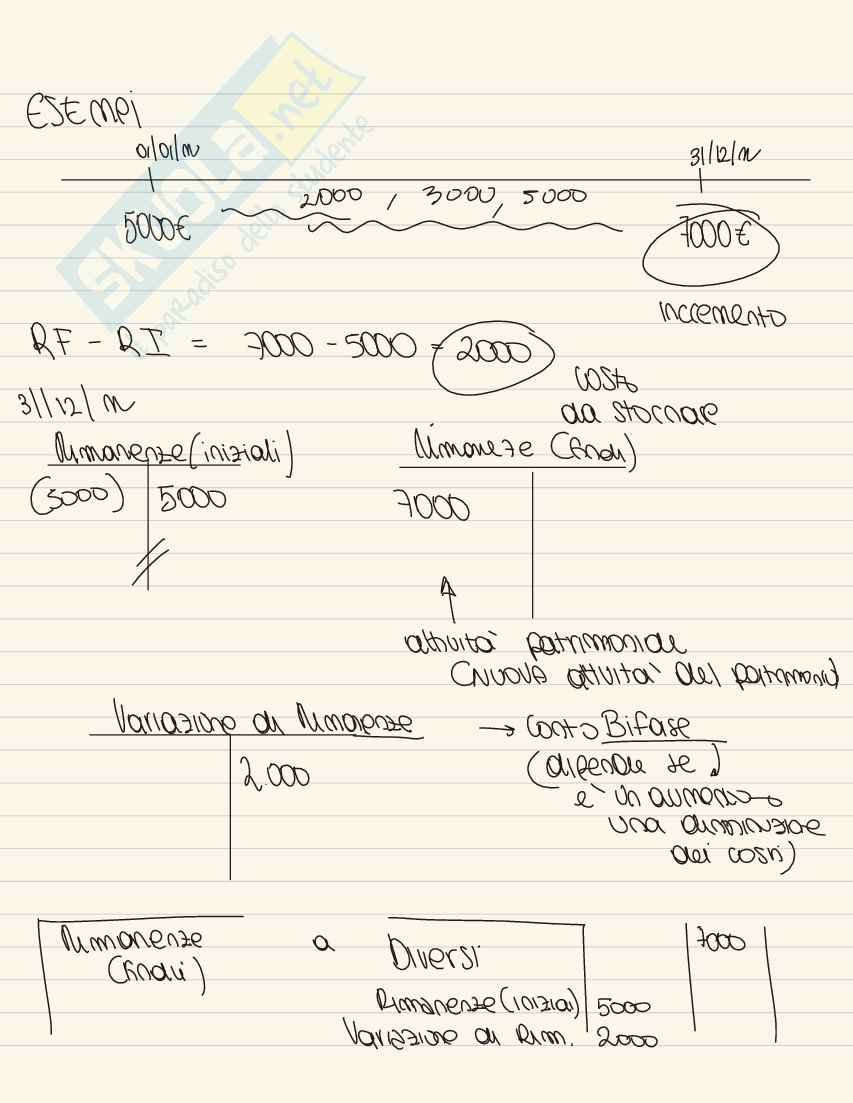 ESEMPI
01/01/n
31/12/n
2000 , 3000, 5000
5000€
7000€
incremento
RF - RI = 7000 - 5000 = 2000
costo
da stornare
31/12/n
Rimanenze (iniziali)
Rimanenze (finali)
(5000) 5000
7000
attività patrimoniale
(nuova attività del patrimonio)
Variazione di Rimanenze → conto Bifase
2.000
(dipende se
è un aumento o
una diminuzione
dei costi)
Rimanenze a Diversi 7000
(finali)
Rimanenze (iniziali) 5000
Variazione di Rim. 2000
SKUOLA.net
il paradiso dello studente